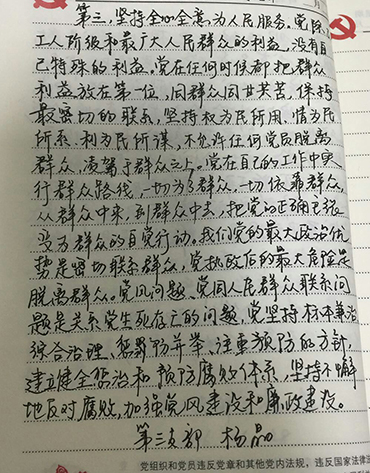 第三,坚持全心全意为人民服务。党除了
工人阶级和最广大人民群众的利益,没有自
己特殊的利益。党在任何时候都把群众
利益放在第一位,同群众同甘共苦,保持
最密切的联系,坚持权为民所用、情为民
所系、利为民所谋,不允许任何党员脱离
群众,凌驾于群众之上。党在自己的工作中实
行群众路线,一切为了群众,一切依靠群众,
从群众中来,到群众中去,把党的正确主张
变为群众的自觉行动。我们党的最大政治优
势是密切联系群众,党执政后的最大危险是
脱离群众。党风问题、党同人民群众联系问
题是关系党生死存亡的问题,党坚持标本兼治、
综合治理、惩防并举、注重预防的方针,
建立健全惩治和预防腐败体系,坚持不懈
地反对腐败,加强党风建设和廉政建设。
第三支部 杨晶
党组织和党员违反党章和其他党内法规,违反国家法律法